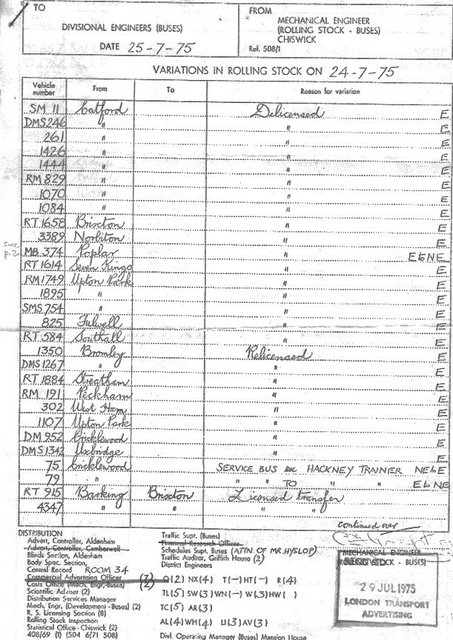 TO
DIVISIONAL ENGINEERS (BUSES)
DATE 25-7-75
FROM
MECHANICAL ENGINEER
(ROLLING STOCK - BUSES)
CHISWICK
Ref. 508/1
VARIATIONS IN ROLLING STOCK ON 24-7-75
Vehicle number From To Reason for variation
SM 11 Catford Delicensed E
DMS 246 " " E
261 " " E
1426 " " E
1444 " " E
RM 829 " " E
1070 " " E
1084 " " E
RT 1658 Brixton " E
3389 Norbiton " E
See p.2
MB 374 Poplar " E & NE
RT 1614 Seven Kings " E
RM 1749 Upton Park " E
1895 " " E
SMS 754 " " E
825 Fulwell " E
RT 584 Southall " E
1350 Bromley Relicensed E
DMS 1267 " " E
RT 1884 Streatham " E
RM 191 Peckham " E
302 West Ham " E
1107 Upton Park " E
DM 952 Cricklewood " E
DMS 1342 Uxbridge " E
75 Cricklewood SERVICE BUS HACKNEY TRAINER NE & E
79 " " TO " E & NE
RT 915 Barking Brixton Licensed transfer E
4347 " " " E
continued over
DISTRIBUTION
Advert. Controller, Aldenham
Advert. Controller, Camberwell
Blinds Section, Aldenham
Body Spec. Section,
Central Record ROOM 34
Commercial Advertising Officer (7)
Costs Office (Mech. Engr. Buses) (2)
Scientific Adviser (2)
Distribution Services Manager
Mech. Engr. (Development - Buses) (2)
R. S. Licensing Section (8)
Rolling Stock Inspection
Statistical Office - Chiswick (2)
408/69 (1) (504 6/71 508)
Traffic Supt. (Buses)
Financial Research Officer
Schedules Supt. Buses (ATTN OF MR HYSLOP)
Traffic Auditor, Griffith House (2)
District Engineers
Q(2) NX(4) T(-) HT(-) R(4)
TL(5) SW(3) WN(-) W(3) HW( )
TC(5) AR(3)
AL(4) WH(4) U(3) AV(3)
Divl. Operating Manager (Buses) Mansion House
MECHANICAL ENGINEER
- BUSES)
29 JUL 1975
LONDON TRANSPORT
ADVERTISING